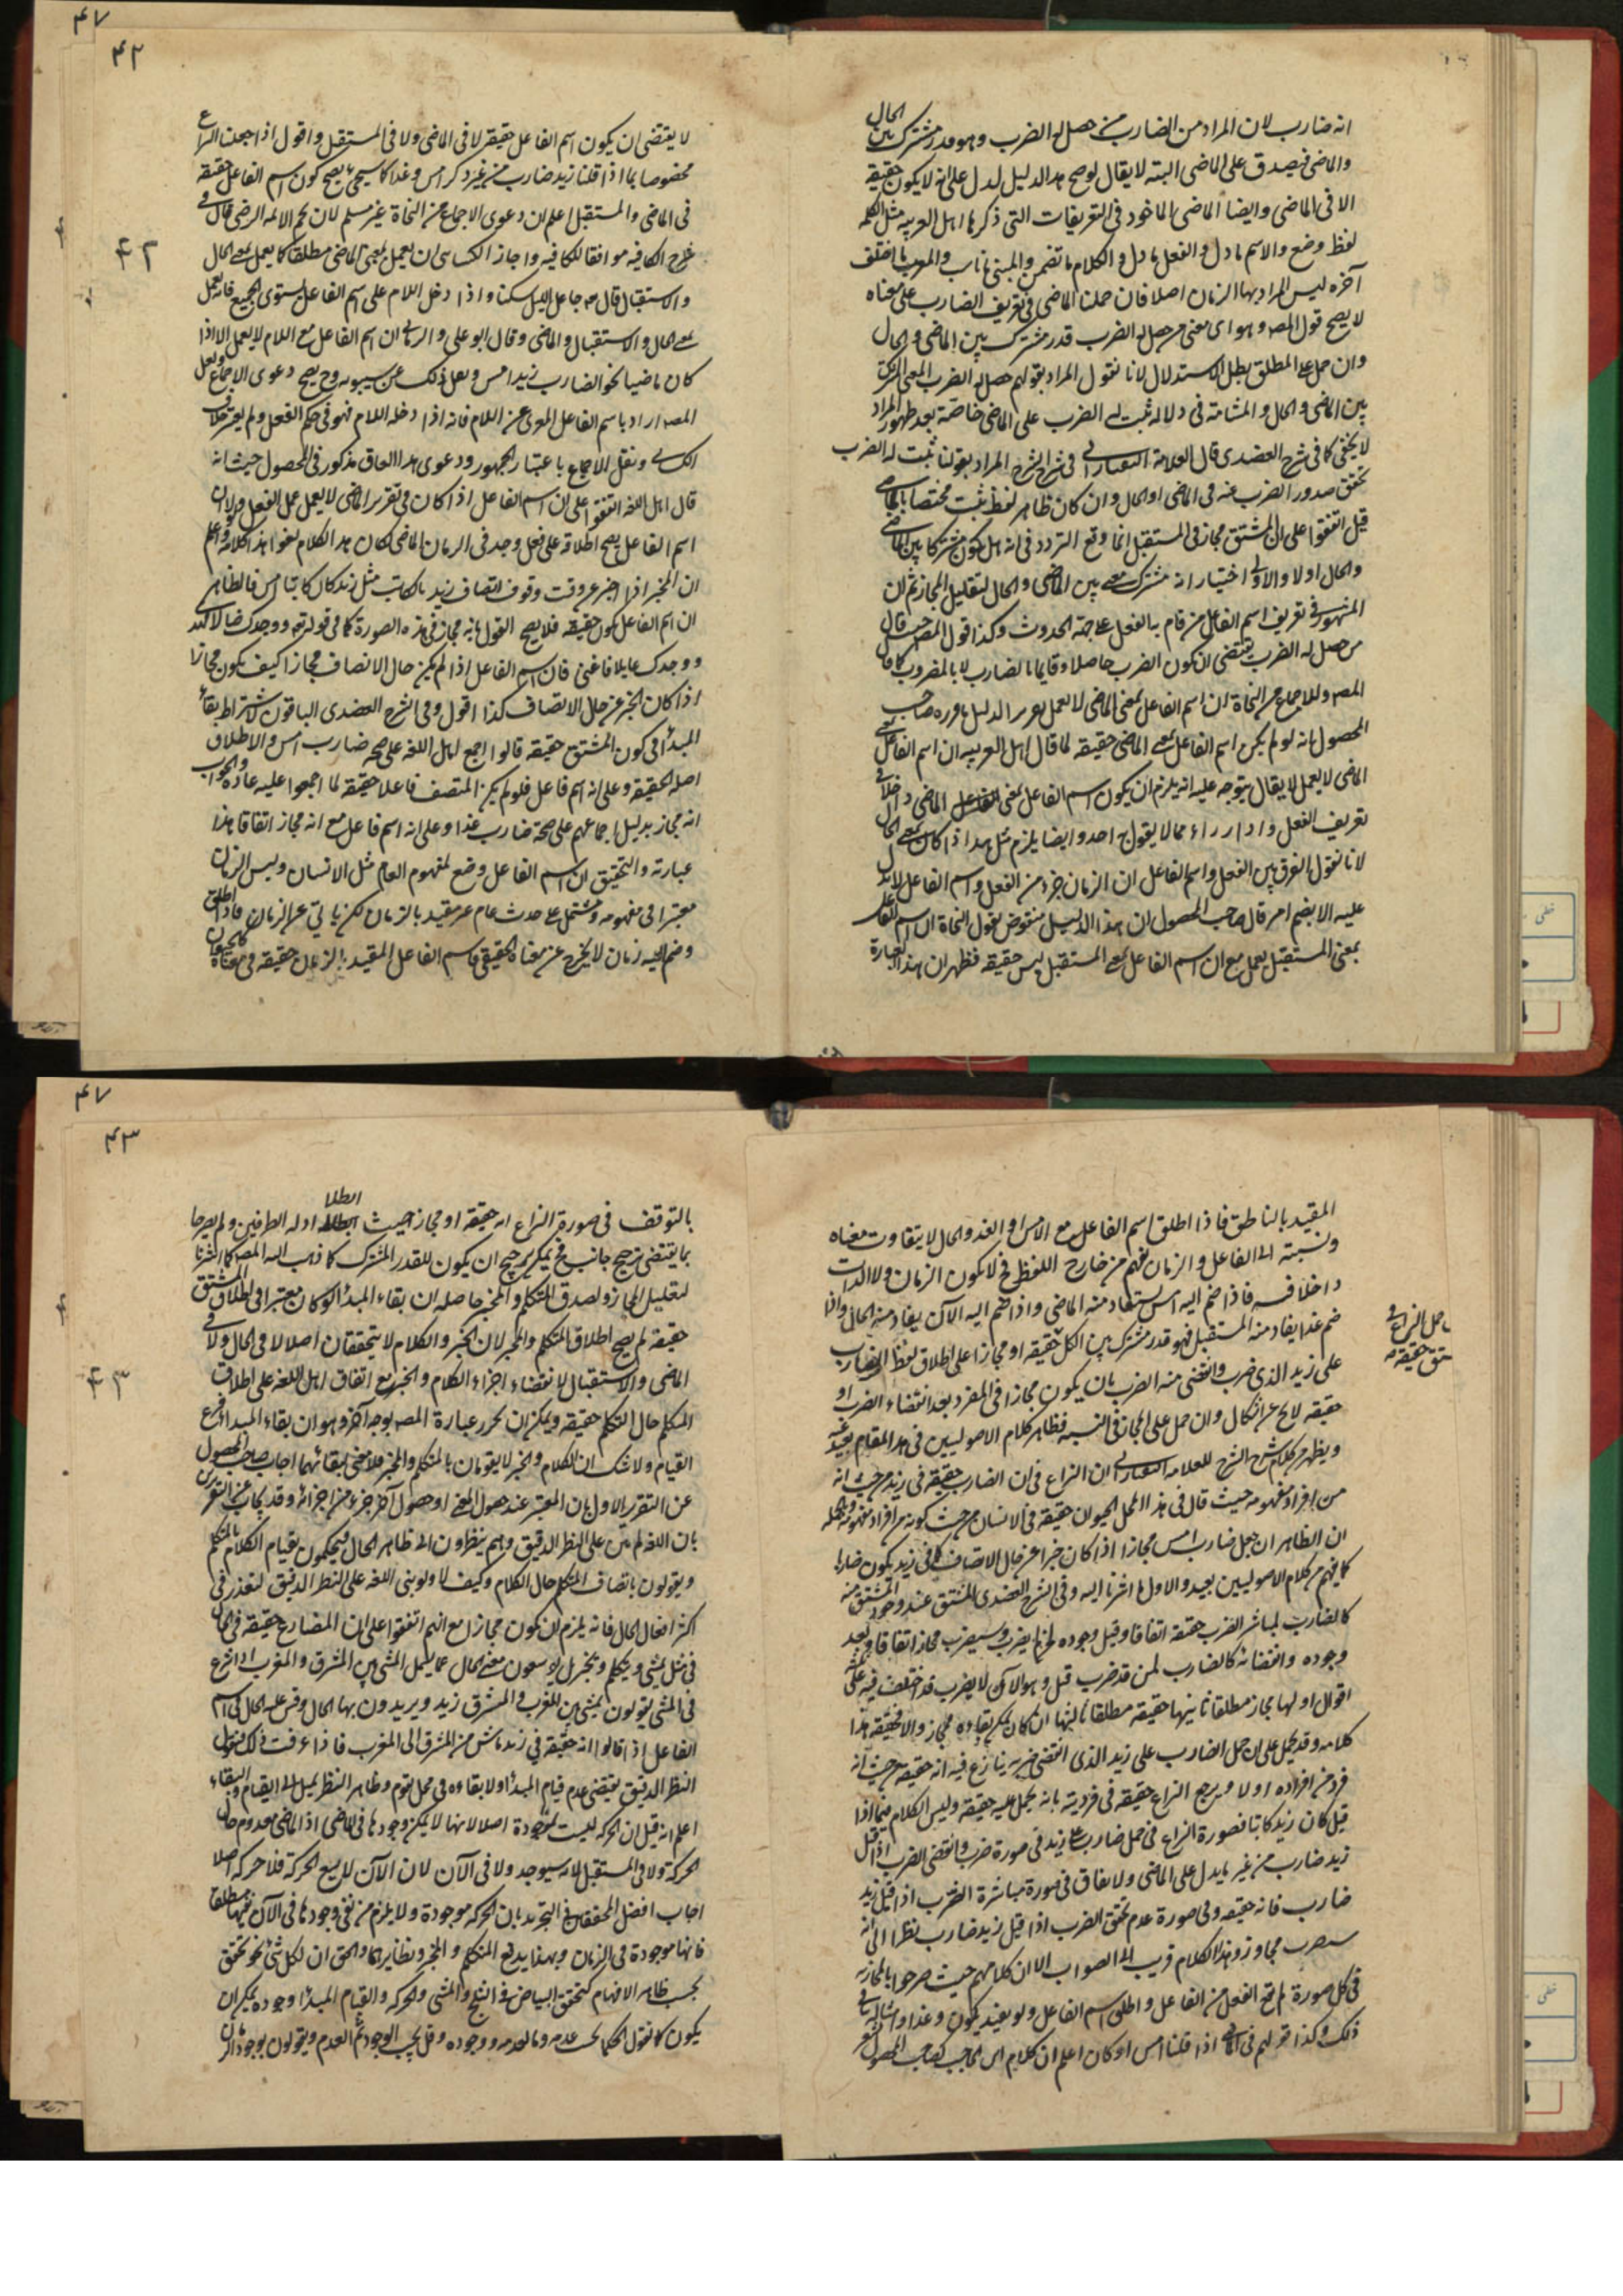 ۴۷
۴۲
انه ضارب لان المراد من الضارب من حصل له الضرب وهو قدر مشترك بين الحال
والماضى فيصدق على الماضى البته لا يقال لو صح هذا الدليل لدل على انه لا يكون حقيقة
الا فى الماضى وايضا الماضى الماخود فى التعريفات التى ذكرها اهل العربيه مثل الكلمه
لفظ وضع والاسم ما دل والفعل ما دل والكلام ما تضمن والمبنى ما ناسب والمعرب ما اختلف
آخره ليس المراد بها الزمان اصلا فان حملنا الماضى فى تعريف الضارب على معناه
لا يصح قول المصـ وهو اى معنى من حصل له الضرب قدر مشترك بين الماضى والحال
وان حمل على المطلق بطل الاستدلال لانا نقول المراد بقولهم حصل له الضرب المعنى المشترك
بين الماضى والحال والمشاحة فى دلالة ثبت له الضرب على الماضى خاصة بعد ظهور المراد
لا يخفى كما فى شرح العضدى قال العلامة التفتازانى فى شرح الشرح المراد بقولنا ثبت له الضرب
تحقق صدور الضرب عنه فى الماضى او الحال وان كان ظاهر لفظ ثبت مختصا بالماضى
قيل اتفقوا على ان المشتق مجاز فى المستقبل انما وقع التردد فى انه هل يكون مشتركا بين الماضى
والحال اولا والاولى اختيار انه مشترك معنى بين الماضى والحال لتقليل المجاز ثم ان
المشهور فى تعريف اسم الفاعل من قام به الفعل على جهة الحدوث وكذا قول المصـ حيث قال
من حصل له الضرب يقتضى ان يكون الضرب حاصلا وقايما بالضارب لا بالمضروب كما قال
المصـ وللاجماع من النحاة ان اسم الفاعل بمعنى الماضى لا يعمل تقرير الدليل ما قرره صاحب
المحصول بانه لو لم يكن اسم الفاعل بمعنى الماضى حقيقه لما قال اهل العربيه ان اسم الفاعل بمعنى
الماضى لا يعمل لا يقال يتوجه عليه انه يلزم ان يكون اسم الفاعل بمعنى الماضى داخلا فى
تعريف الفعل مما لا يقول به احد وايضا يلزم مثل هذا اذا كان بمعنى الحال
لانا نقول الفرق بين الفعل واسم الفاعل ان الزمان جزء من الفعل واسم الفاعل لا يدل
عليه الا بضم امر قال صاحب المحصول ان هذا الدليل منقوض بقول النحاة ان اسم الفاعل
بمعنى المستقبل يعمل مع ان اسم الفاعل بمعنى المستقبل ليس حقيقه فظهر ان هذا العبارة
لا يقتضى ان يكون اسم الفاعل حقيقة لا فى الماضى ولا فى المستقبل واقول اذا جعلنا النزاع
مخصوصا بما اذا قلنا زيد ضارب من غير ذكر امس وغدا كما سيجئ يصح كون اسم الفاعل حقيقه
فى الماضى والمستقبل اعلم ان دعوى الاجماع من النحاة غير مسلم لان نجم الائمه الرضى قال فى
شرح الكافيه موافقا للكافيه واجاز الكسائى ان يعمل بمعنى الماضى مطلقا كما يعمل بمعنى الحال
والاستقبال قال مه جاعل الليل سكنا واذا دخل اللام على اسم الفاعل يستوى الجميع فانه يعمل
بمعنى الحال والاستقبال والماضى وقال ابو على والرمانى ان اسم الفاعل مع اللام لا يعمل الا اذا
كان ماضيا نحو الضارب زيدا امس ونقل ذلك عن سيبويه وح يصح دعوى الاجماع ولعل
المصـ اراد باسم الفاعل المعرى عن اللام فانه اذا دخله اللام فهو فى حكم الفعل ولم يعتبر خلاف
الكسائى ونقل الاجماع باعتبار الجمهور ودعوى هذا الاتفاق مذكور فى المحصول حيث انه
قال اهل اللغه اتفقوا على ان اسم الفاعل اذا كان فى تقرير الماضى لا يعمل عمل الفعل ولولا ان
اسم الفاعل يصح اطلاقه على فعل وجد فى الزمان الماضى لكان هذا الكلام لغوا هذا كلامه واعلم
ان المخبر اذا اخبر عن وقت وقوف اتصاف زيد بالكتابة مثل زيد كان كاتبا امس فالظاهر
ان اسم الفاعل يكون حقيقه فلا يصح القول بانه مجاز فى هذه الصورة كما فى قوله تع ووجدك ضالا فهدى
ووجدك عايلا فاغنى فان اسم الفاعل اذا لم يكن حال الاتصاف مجازا كيف يكون مجازا
اذا كان الخبر عن حال الاتصاف كذا اقول وفى الشرح العضدى الباقون لاشتراط بقاء
المبدأ فى كون المشتق حقيقه قالوا اجمع اهل اللغه على صحه ضارب امس والاطلاق
اصله الحقيقه وعلى انه اسم فاعل فلو لم يكن المتصف فاعلا حقيقه لما اجمعوا عليه عادة والجواب
انه مجاز بدليل اجماعهم على صحة ضارب غدا وعلى انه اسم فاعل مع انه مجاز اتفاقا هذا
عبارته والتحقيق ان اسم الفاعل وضع لمفهوم العام مثل الانسان وليس الزمان
معتبرا فى مفهومه ومشتمل على حدث عام غير مقيد بالزمان لكن ياتى عن الزمان فاذا اطلق
وضم اليه زمان لا يخرج عن معناه الحقيقى فاسم الفاعل المقيد بالزمان حقيقه فى معناه كالحيوان
۴۲
۴۷
۴۳
المقيد بالناطق فاذا اطلق اسم الفاعل مع الامس او الغد والحال لا يتفاوت معناه
ونسبته الى الفاعل والزمان يفهم من خارج اللفظ فح لا يكون الزمان ولا الذات
داخلا فيه فاذا ضم اليه امس يستفاد منه الماضى واذا ضم اليه الآن يفاد منه الحال واذا
ضم غدا يفاد منه المستقبل فهو قدر مشترك بين الكل حقيقه او مجازا على اطلاق لفظ الضارب
على زيد الذى ضرب وانقضى منه الضرب بان يكون مجازا فى المفرد بعد انقضاء الضرب او
حقيقه لا يخ عن اشكال وان حمل على المجاز فى النسبه فظاهر كلام الاصوليين فى هذا المقام بعيد عنه
ويظهر من كلام شرح الشرح للعلامه التفتازانى ان النزاع فى ان الضارب حقيقه فى زيد من حيث انه
من افراد مفهومه حيث قال فى هذا المحل الحيوان حقيقه فى الانسان من حيث كونه من افراد مفهومه والجمله
ان الظاهر ان جعل ضارب امس مجازا اذا كان خبرا عن حال الاتصاف كما فى زيد يكون ضاربا
كما يفهم من كلام الاصوليين بعيد والاول ما اشرنا اليه وفى الشرح العضدى المشتق عند وجود المشتق منه
كالضارب لمباشر الضرب حقيقه اتفاقا وقبل وجوده لمن لم يضرب وسيضرب مجازا اتفاقا وبعد
وجوده وانقضائه كالضارب لمن قد ضرب قبل وهو الآن لا يضرب قد اختلف فيه على ثلثة
اقوال اولها مجاز مطلقا ثانيها حقيقه مطلقا ثالثها ان كان يمكن بقاؤه مجاز والا فحقيقه هذا
كلامه وقد يحمل على ان حمل الضارب على زيد الذى انقضى ضربه ينازع فيه انه حقيقه من حيث انه
فرد من افراده اولا ويرجع النزاع حقيقه فى فرديته بانه يحمل عليه حقيقه وليس الكلام فيما اذا
قيل كان زيد كاتبا فصورة النزاع فى حمل ضارب على زيد فى صورة ضرب وانقضى الضرب اذا قيل
زيد ضارب من غير ما يدل على الماضى والاتفاق فى صورة مباشرة الضرب اذا قيل زيد
ضارب فانه حقيقه وفى صورة عدم تحقق الضرب اذا قيل زيد ضارب نظرا الى انه
سيضرب مجاز وهذا الكلام قريب الى الصواب الا ان كلامهم حيث صرحوا بالمجازيه
فى كل صورة لم يقع الفعل من الفاعل واطلق اسم الفاعل ولو بقيد يكون وغدا وامثاله ينافى
ذلك وكذا قولهم فى الماضى اذا قلنا امس او كان اعلم ان كلام ابن الحاجب كصاحب المحصول يشعر
ما حمل النزاع فى
حقيقه
بالتوقف فى صورة النزاع انه حقيقه او مجاز حيث ابطلا ادله الطرفين ولم يصرحا
بما يقتضى ترجيح جانب فح يمكن ترجيح ان يكون للقدر المشترك كما ذهب اليه المصـ كما اشرنا
لتقليل المجاز ولصدق المتكلم والمخبر حاصله ان بقاء المبدأ لو كان معتبرا فى اطلاق المشتق
حقيقة لم يصح اطلاق المتكلم والمخبر لان الخبر والكلام لا يتحققان اصلا لا فى الحال ولا فى
الماضى والاستقبال لانقضاء اجزاء الكلام والخبر مع اتفاق اهل اللغه على اطلاق
المتكلم حال التكلم حقيقه ويمكن ان تحرر عبارة المصـ بوجه آخر وهو ان بقاء المبدأ فرع
القيام ولا شك ان الكلام والخبر لا يقومان بالمتكلم والمخبر فلا معنى لبقائهما اجاب صاحب المحصول
عن التقرير الاول بان المعتبر عند حصول المعنى او حصول آخر جزء من اجزائه وقد يجاب عن التقريرين
بان اللغه لم تبن على النظر الدقيق وانهم ينظرون الى ظاهر الحال فيحكمون بقيام الكلام بالمتكلم
ويقولون باتصاف المتكلم حال الكلام وكيف لا ولو بنى اللغه على النظر الدقيق لتعذر فى
اكثر افعال الحال فانه يلزم ان يكون مجازا مع انهم اتفقوا على ان المضارع حقيقه فى الحال
فى مثل يمشى ويتكلم ويخبر بل يوسعون معنى الحال عما يشمل المشى بين المشرق والمغرب اذا شرع
فى المشى يقولون يمشى بين المغرب والمشرق زيد ويريدون بها الحال وقس عليه الحال فى اسم
الفاعل اذا قالوا انه حقيقه فى زيد ماش من المشرق الى المغرب فاذا عرفت ذلك فنقول
النظر الدقيق يقتضى عدم قيام المبدأ ولا بقاءه فى محل يقوم وظاهر النظر يميل الى القيام والبقاء
اعلم انه قيل ان الحركه ليست بموجودة اصلا لانها لا يمكن وجودها فى الماضى اذ الماضى معدوم حال
الحركة ولا فى المستقبل لانه سيوجد ولا فى الآن لان الآن لا يسع الحركة فلا حركه اصلا
اجاب افضل المحققين فى التجريد بان الحركه موجودة ولا يلزم من نفى وجودها فى الآن نفيها مطلقا
فانها موجودة فى الزمان وبهذا يدفع المتكلم والمخبر ونظايرهما والحق ان لكل شئ نحو تحقق
بحسب ظاهر الافهام كتحقق البياض فى الثلج والمشى والحركه والقيام المبدأ وجوده يمكن ان
يكون كما نقول الحكما عدمه وما لعدمه ووجوده وقبل يجب الوجود ثم العدم ويقولون بوجود ما ان
۴۳